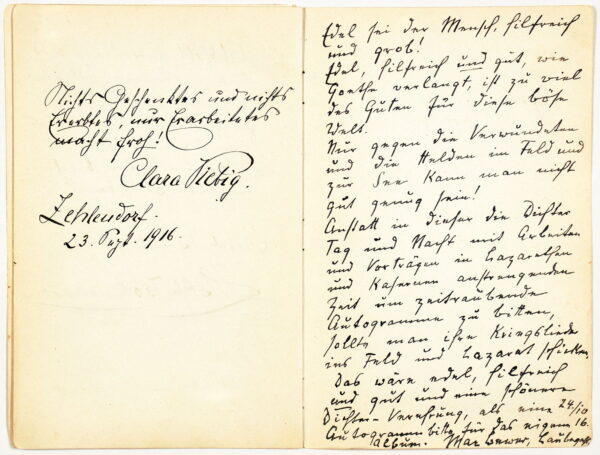 Nichts Geschenktes und nichts
Ererbtes, nur Erarbeitetes
macht froh!
Clara Viebig.
Zehlendorf.
23. Sept. 1916.
Edel sei der Mensch, hilfreich
und grob!
Edel, hilfreich und gut, wie
Goethe verlangt, ist zu viel
des Guten für diese böse
Welt.
Nur gegen die Verwundeten
und die Helden im Feld und
zur See kann man nicht
gut genug sein!
Anstatt in dieser die Dichter
Tag und Nacht mit Arbeiten
und Vorträgen in Lazarethen
und Kasernen anstrengenden
Zeit um zeitraubende
Autogramme zu bitten,
sollte man ihre Kriegslieder
ins Feld und Lazaret schicken.
Das wäre edel, hilfreich
und gut und eine schönere
Dichter-Verehrung, als eine 24/10
Autogrammbitte für das eigene 16.
Album. Max Bewer, Laubegast.